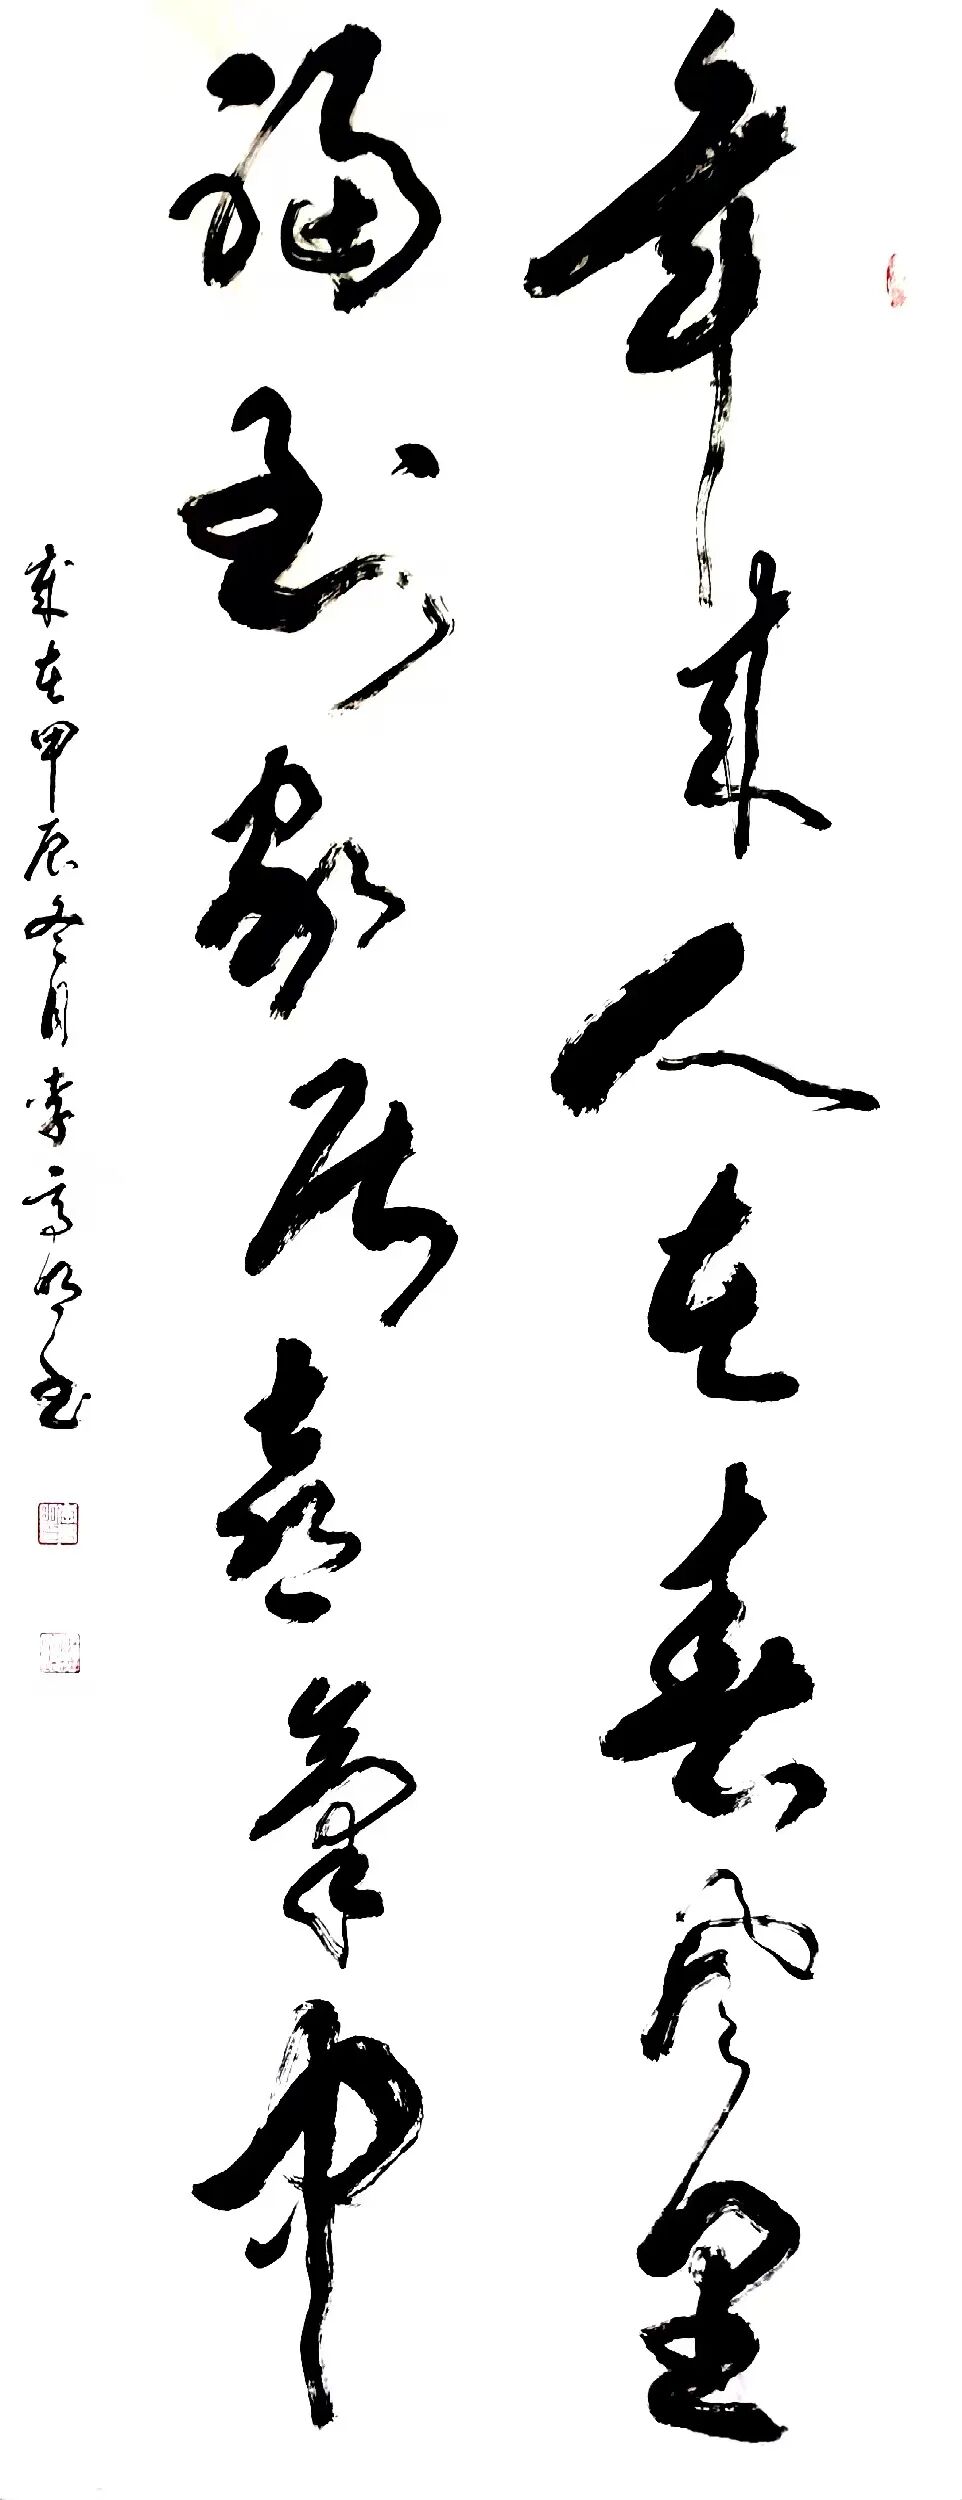 年来人在春风里
福到家居喜气中
岁在甲辰冬月李高明书